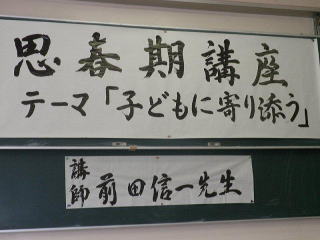 思春期講座
テーマ「子どもに寄り添う」
講師 前田信一先生